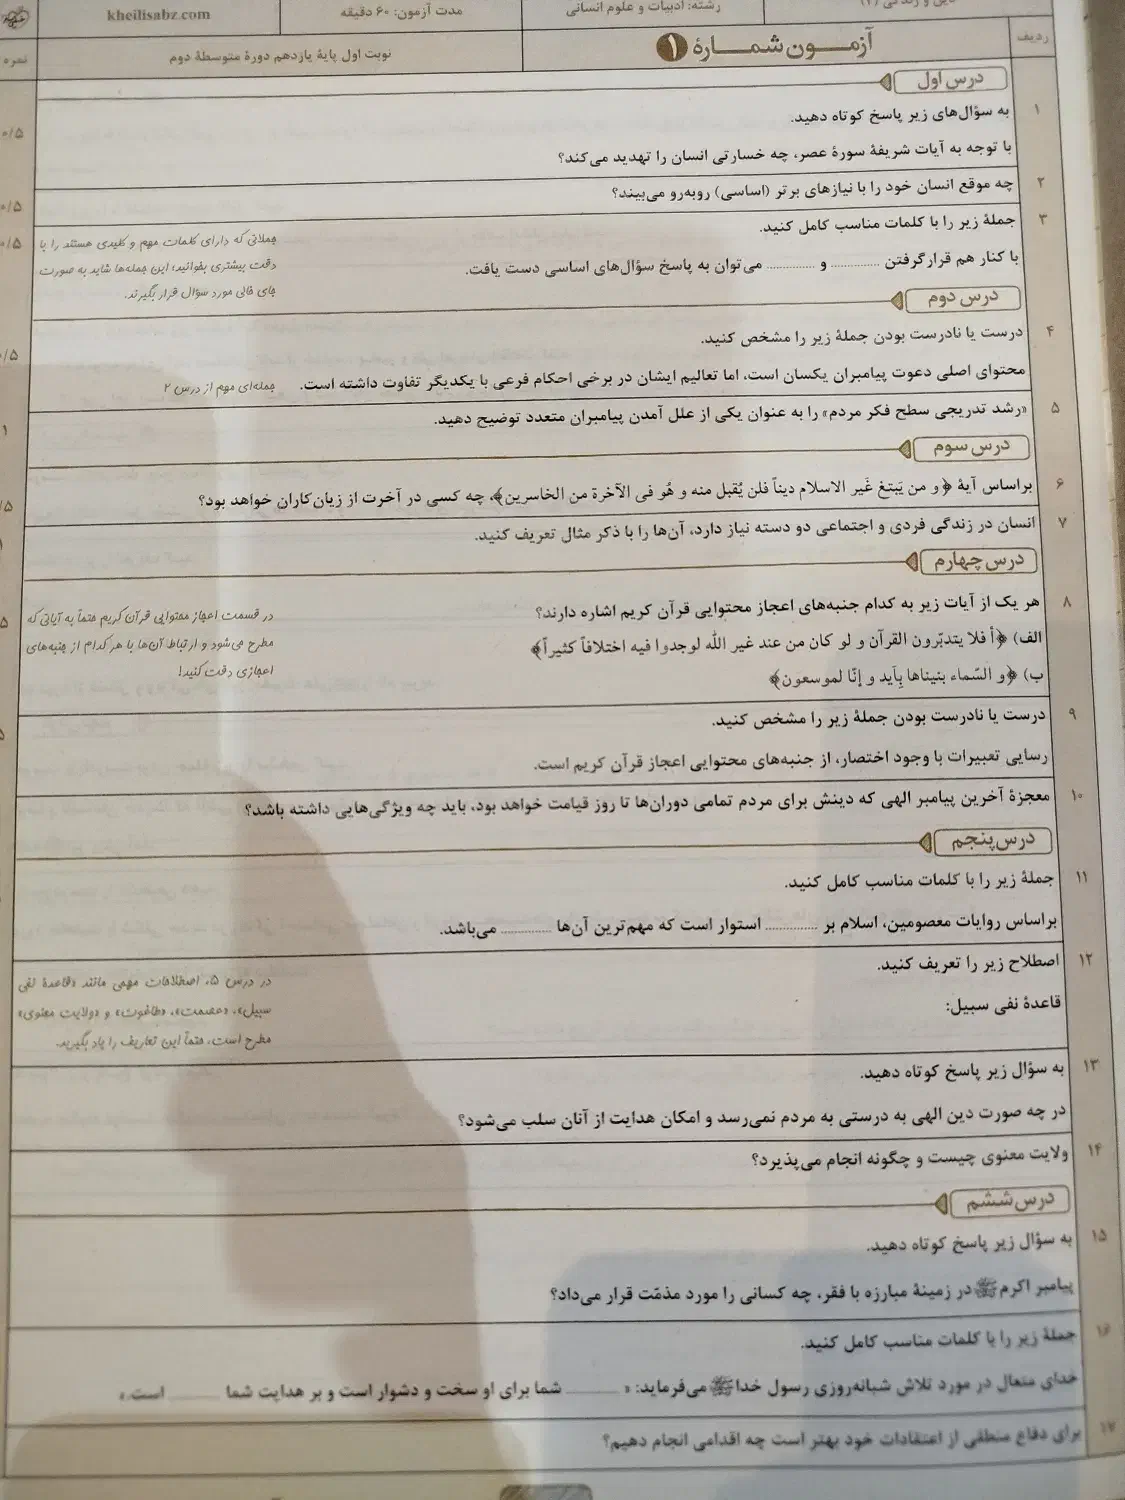 دین و زندگی (۲)
رشته: ادبیات و علوم انسانی
مدت آزمون: ۶۰ دقیقه
kheilisabz.com
ردیف
آزمون شمارهٔ ۱
نوبت اول پایهٔ یازدهم دورهٔ متوسطهٔ دوم
نمره
درس اول
۱ به سؤال‌های زیر پاسخ کوتاه دهید.
۰/۵
با توجه به آیات شریفهٔ سورهٔ عصر، چه خسارتی انسان را تهدید می‌کند؟
۲ چه موقع انسان خود را با نیازهای برتر (اساسی) روبه‌رو می‌بیند؟
۰/۵
۳ جملهٔ زیر را با کلمات مناسب کامل کنید.
۰/۵
با کنار هم قرارگرفتن ............ و ............ می‌توان به پاسخ سؤال‌های اساسی دست یافت.
جملاتی که دارای کلمات مهم و کلیدی هستند را با
دقت بیشتری بخوانید؛ این جمله‌ها شاید به صورت
جای خالی مورد سؤال قرار بگیرند.
درس دوم
۴ درست یا نادرست بودن جملهٔ زیر را مشخص کنید.
محتوای اصلی دعوت پیامبران یکسان است، اما تعالیم ایشان در برخی احکام فرعی با یکدیگر تفاوت داشته است.
جمله‌ای مهم از درس ۲
۵ «رشد تدریجی سطح فکر مردم» را به عنوان یکی از علل آمدن پیامبران متعدد توضیح دهید.
۱
درس سوم
۶ براساس آیهٔ ﴿و من یَبتغ غَیر الاسلام دیناً فلن یُقبل منه و هُو فی الآخرة من الخاسرین﴾، چه کسی در آخرت از زیان‌کاران خواهد بود؟
۷ انسان در زندگی فردی و اجتماعی دو دسته نیاز دارد، آن‌ها را با ذکر مثال تعریف کنید.
درس چهارم
۸ هر یک از آیات زیر به کدام جنبه‌های اعجاز محتوایی قرآن کریم اشاره دارند؟
الف) ﴿أ فلا یتدبّرون القرآن و لو کان من عند غیر اللّه لوجدوا فیه اختلافاً کثیراً﴾
ب) ﴿و السّماء بنیناها بِأید و إنّا لموسعون﴾
در قسمت اعجاز محتوایی قرآن کریم حتماً به آیاتی که
مطرح می‌شود و ارتباط آن‌ها با هر کدام از جنبه‌های
اعجازی دقت کنید!
۹ درست یا نادرست بودن جملهٔ زیر را مشخص کنید.
رسایی تعبیرات با وجود اختصار، از جنبه‌های محتوایی اعجاز قرآن کریم است.
۱۰ معجزهٔ آخرین پیامبر الهی که دینش برای مردم تمامی دوران‌ها تا روز قیامت خواهد بود، باید چه ویژگی‌هایی داشته باشد؟
درس پنجم
۱۱ جملهٔ زیر را با کلمات مناسب کامل کنید.
براساس روایات معصومین، اسلام بر ............ استوار است که مهم‌ترین آن‌ها ............ می‌باشد.
۱۲ اصطلاح زیر را تعریف کنید.
قاعدهٔ نفی سبیل:
در درس ۵، اصطلاحات مهمی مانند «قاعدهٔ نفی
سبیل»، «عصمت»، «طاغوت» و «ولایت معنوی»
مطرح است، حتماً این تعاریف را یاد بگیرید.
۱۳ به سؤال زیر پاسخ کوتاه دهید.
در چه صورت دین الهی به درستی به مردم نمی‌رسد و امکان هدایت از آنان سلب می‌شود؟
۱۴ ولایت معنوی چیست و چگونه انجام می‌پذیرد؟
درس ششم
۱۵ به سؤال زیر پاسخ کوتاه دهید.
پیامبر اکرم ﷺ در زمینهٔ مبارزه با فقر، چه کسانی را مورد مذمّت قرار می‌داد؟
۱۶ جملهٔ زیر را با کلمات مناسب کامل کنید.
خدای متعال در مورد تلاش شبانه‌روزی رسول خدا ﷺ می‌فرماید: « ............ شما برای او سخت و دشوار است و بر هدایت شما ............ است.»
۱۷ برای دفاع منطقی از اعتقادات خود بهتر است چه اقدامی انجام دهیم؟